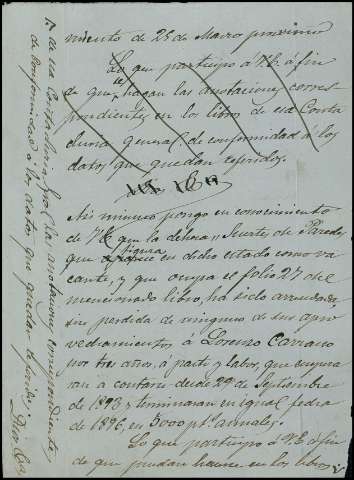 miento de 25 de Marzo proximo
Lo que participo á V.E. á fin
de que se hagan las anotaciones corres-
pondientes en los libros de esa Conta
duria General, de conformidad á los
datos que quedan referidos.
Asi mismo pongo en conocimiento
de V.E. que la dehesa "Suerte de Paredes"
que figura aparece en dicho estado como va
cante, y que ocupa el folio 27 del
mencionado libro ha sido arrendada,
sin perdida de ninguno de sus apro
vechamientos á Lorenzo
por tres años, á pasto y labor, que empeza
ran a contarse desde 29 de Septiembre
de 1893 y terminaran en igual fecha
de 1896, en 5000 pts. anuales.
Lo que participo á V.E. á fin
de que puedan hacerse en los libros
de esa Contaduria Gral. las anotaciones correspondientes
de conformidad á los datos que quedan referidos.
Dios &a